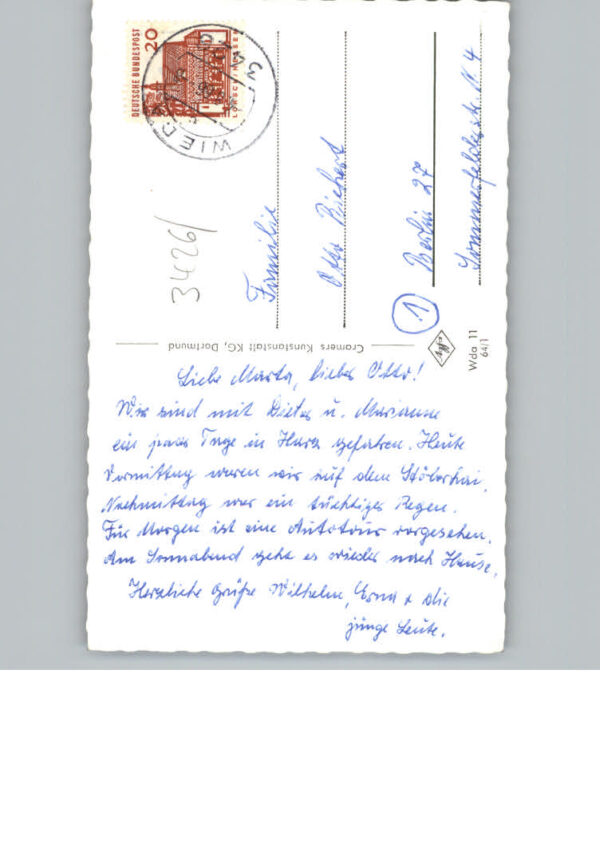 DEUTSCHE BUNDESPOST
20
LORSCH HESSEN
WIED
3426/
Familie
Otto Richert
① Berlin 27
Sommerfelderstr. N 4
Cramers Kunstanstalt KG, Dortmund
Wda 11
64/1
Liebe Marta, lieber Otto!
Wir sind mit Dieter u. Marianne
ein paar Tage in Harz gefahren. Heute
Vormittag waren wir auf dem Stöberhai,
Nachmittag war ein tüchtiger Regen.
Für Morgen ist eine Autotour vorgesehen.
Am Sonnabend geht es wieder nach Hause.
Herzliche Grüße Wilhelm, Erna + die
junge Leute.